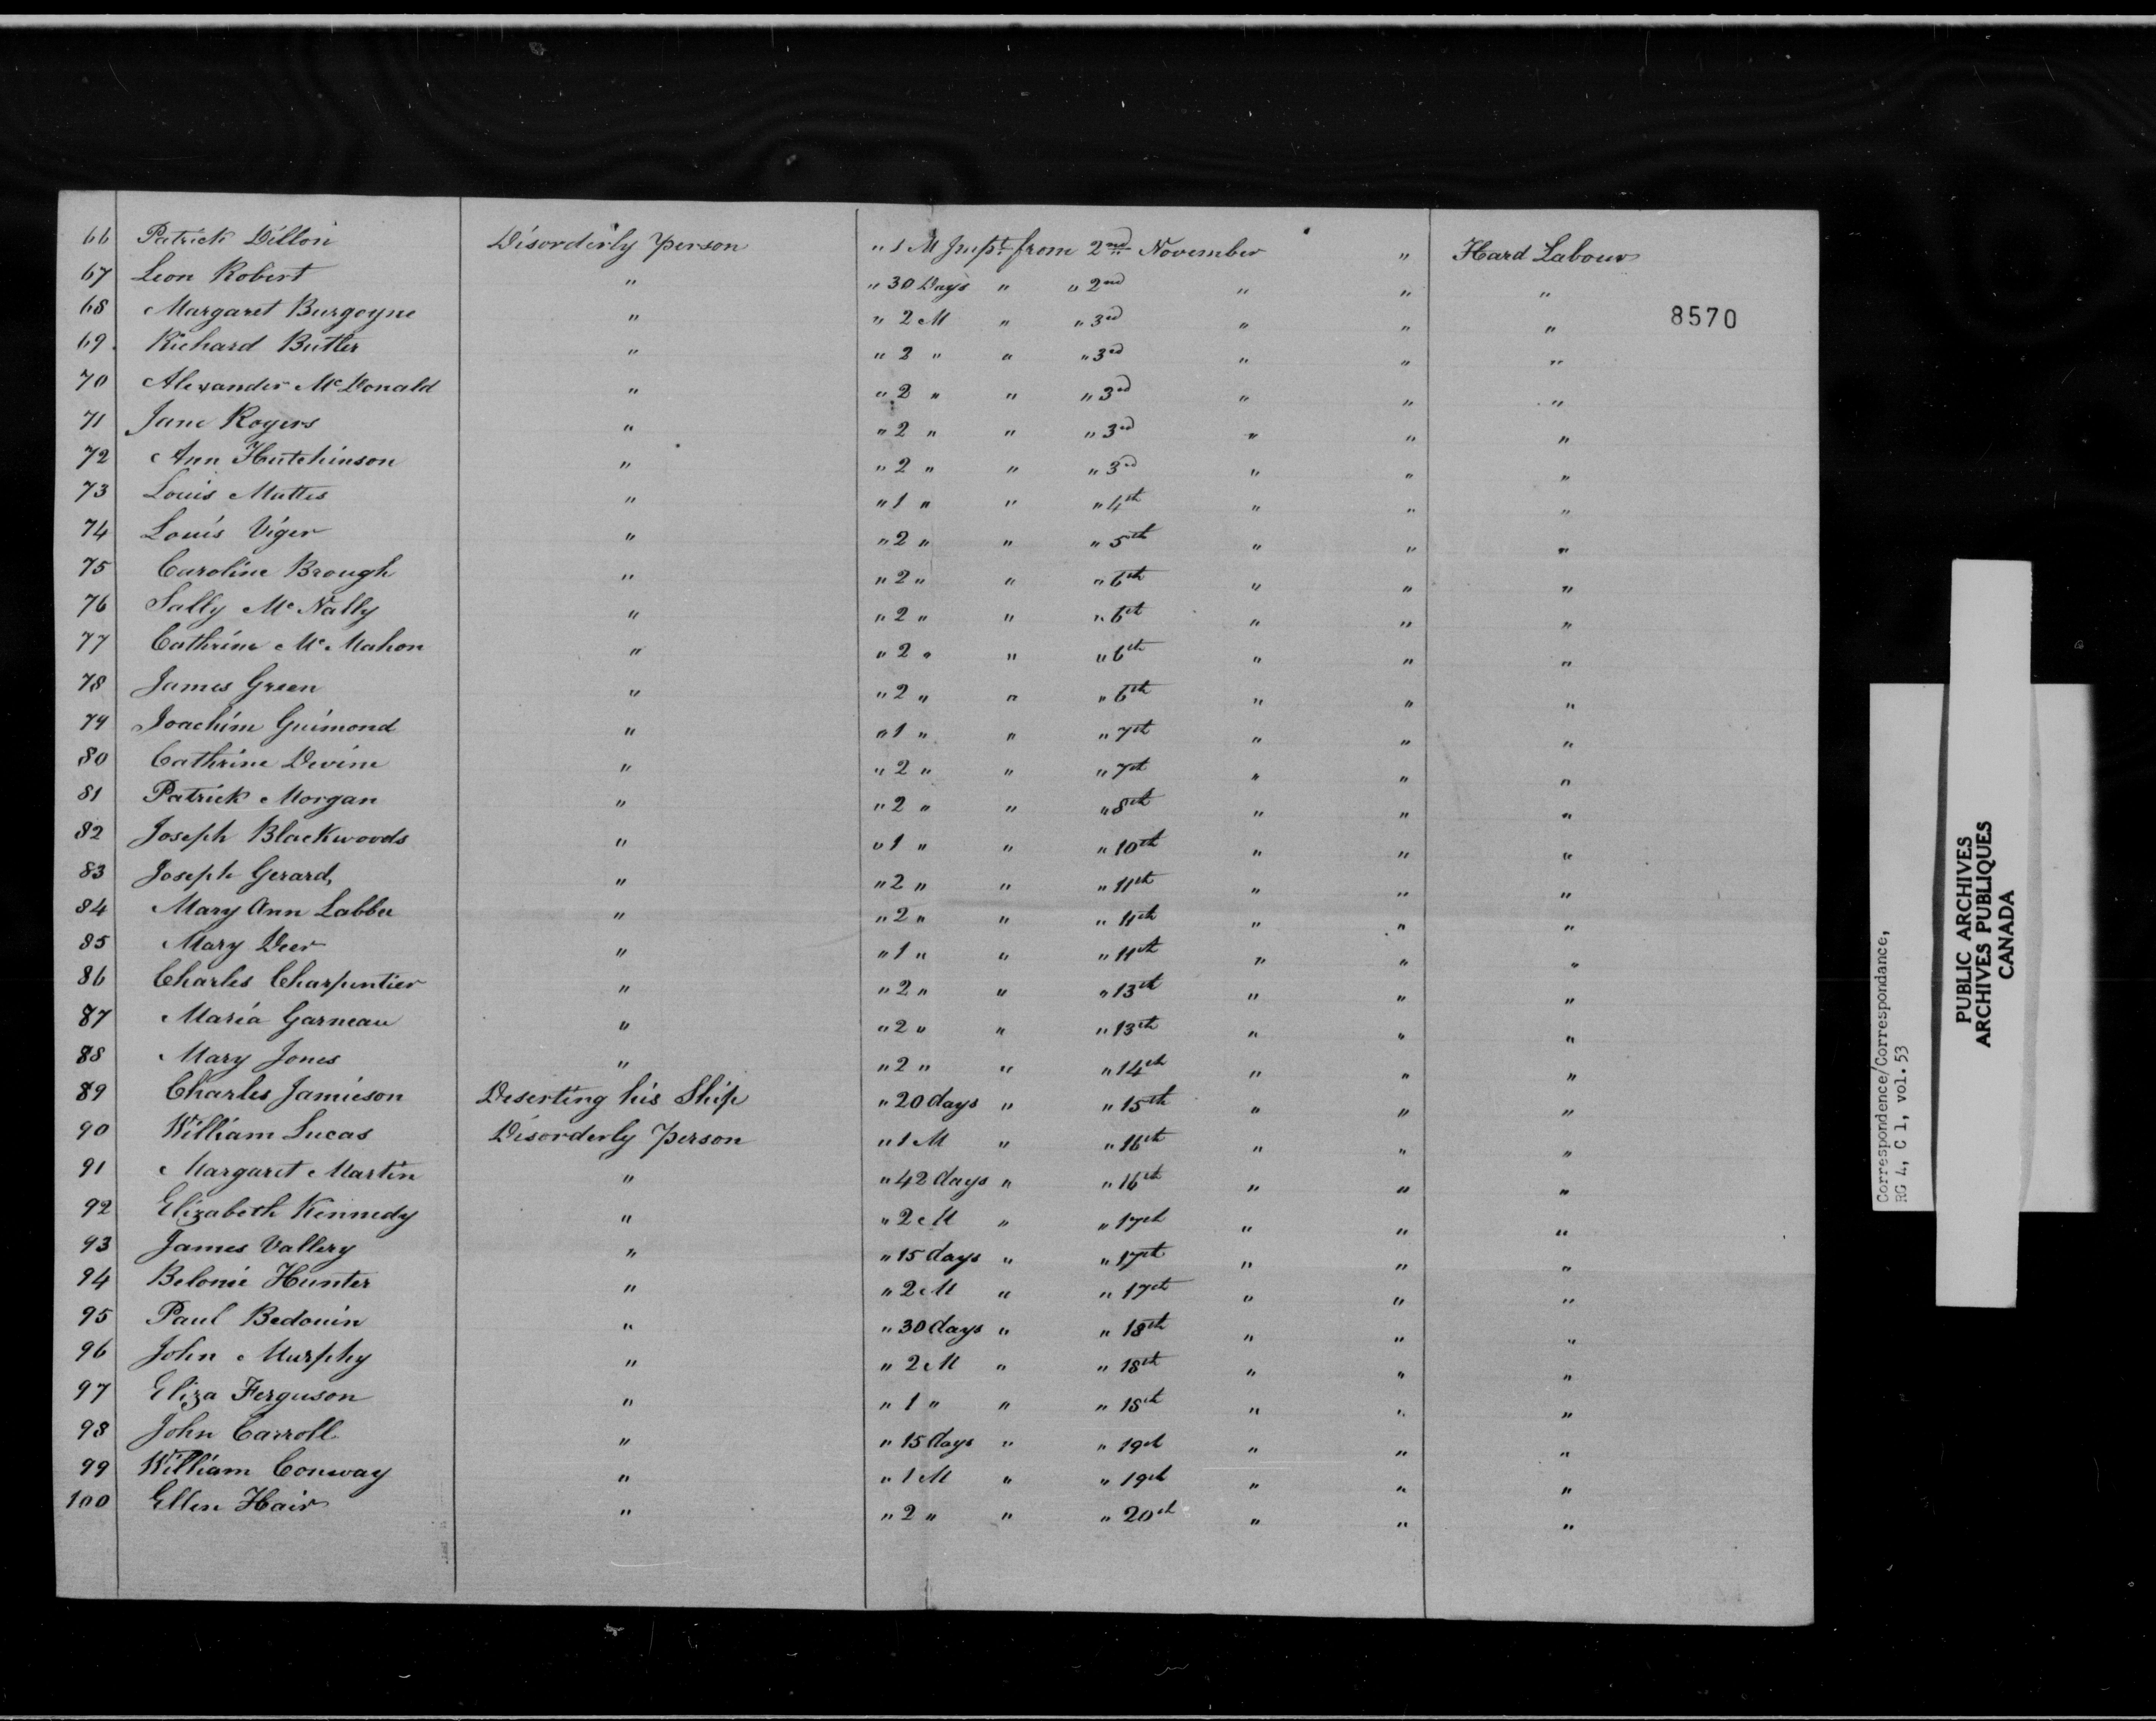 66 Patrick Dillon Disorderly person " 1 M Impt. from 2nd November " Hard Labour
67 Leon Robert " " 30 Days " " 2nd " " "
68 Margaret Burgoyne " " 2 M " " 3rd " " "
8570
69. Richard Butler " " 2 " " " 3rd " " "
70 Alexander McDonald " " 2 " " " 3rd " " "
71 Jane Rogers " " 2 " " " 3rd " " "
72 Ann Hutchinson " " 2 " " " 3rd " " "
73 Louis Mattes " " 1 " " " 4th " " "
74 Louis Viger " " 2 " " " 5th " " "
75 Caroline Brough " " 2 " " " 6th " " "
76 Sally McNally " " 2 " " " 6th " " "
77 Cathrine McMahon " " 2 " " " 6th " " "
78 James Green " " 2 " " " 6th " " "
79 Joachim Guimond " " 1 " " " 7th " " "
80 Cathrine Devine " " 2 " " " 7th " " "
81 Patrick Morgan " " 2 " " " 8th " " "
82 Joseph Blackwoods " " 1 " " " 10th " " "
83 Joseph Gerard, " " 2 " " " 11th " " "
84 Mary Ann Labbee " " 2 " " " 11th " " "
85 Mary Deer " " 1 " " " 11th " " "
86 Charles Charpentier " " 2 " " " 13th " " "
87 Maria Garneau " " 2 " " " 13th " " "
88 Mary Jones " " 2 " " " 14th " " "
89 Charles Jamieson Deserting his Ship " 20 days " " 15th " " "
90 William Lucas Disorderly person " 1 M " " 16th " " "
91 Margaret Martin " " 42 days " " 16th " " "
92 Elizabeth Kennedy " " 2 M " " 17th " " "
93 James Vallery " " 15 days " " 17th " " "
94 Belonie Hunter " " 2 M " " 17th " " "
95 Paul Bedouin " " 30 days " " 18th " " "
96 John Murphy " " 2 M " " 18th " " "
97 Eliza Ferguson " " 1 " " " 18th " " "
98 John Carroll " " 15 days " " 19th " " "
99 William Conway " " 1 M " " 19th " " "
100 Ellen Hair " " 2 " " " 20th " " "
Correspondence/Correspondance,
RG 4, C 1, vol. 53
PUBLIC ARCHIVES
ARCHIVES PUBLIQUES
CANADA